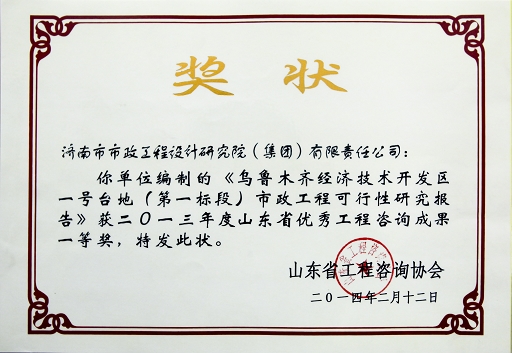 奖状
济南市市政工程设计研究院（集团）有限责任公司：
你单位编制的《乌鲁木齐经济技术开发区
一号台地（第一标段）市政工程可行性研究报
告》获二〇一三年度山东省优秀工程咨询成果
一等奖，特发此状。
山东省工程咨询协会
二〇一四年二月十二日